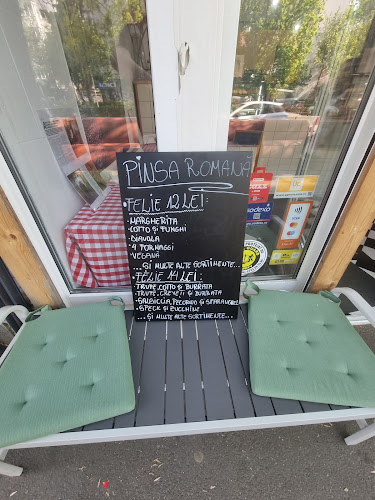 PINSA ROMANĂ
FELIE 12 LEI:
·MARGHERITA
·COTTO ȘI FUNGHI
·DIAVOLA
·4 FORMAGGI
·VEGANĂ
...ȘI MULTE ALTE SORTIMENTE...
FELIE 14 LEI:
·TRUFE, COTTO ȘI BURRATA
·TRUFE, CREVEȚI ȘI BURRATA
·SALSICCIA, PECORINO ȘI SPARANGHEL
·SPECK ȘI ZUCCHINE
...ȘI MULTE ALTE SORTIMENTE...
sodexo